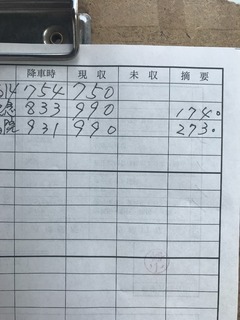 降車時 現収 未収 摘要
14 754 750
急 833 990 1740
院 931 990 2730